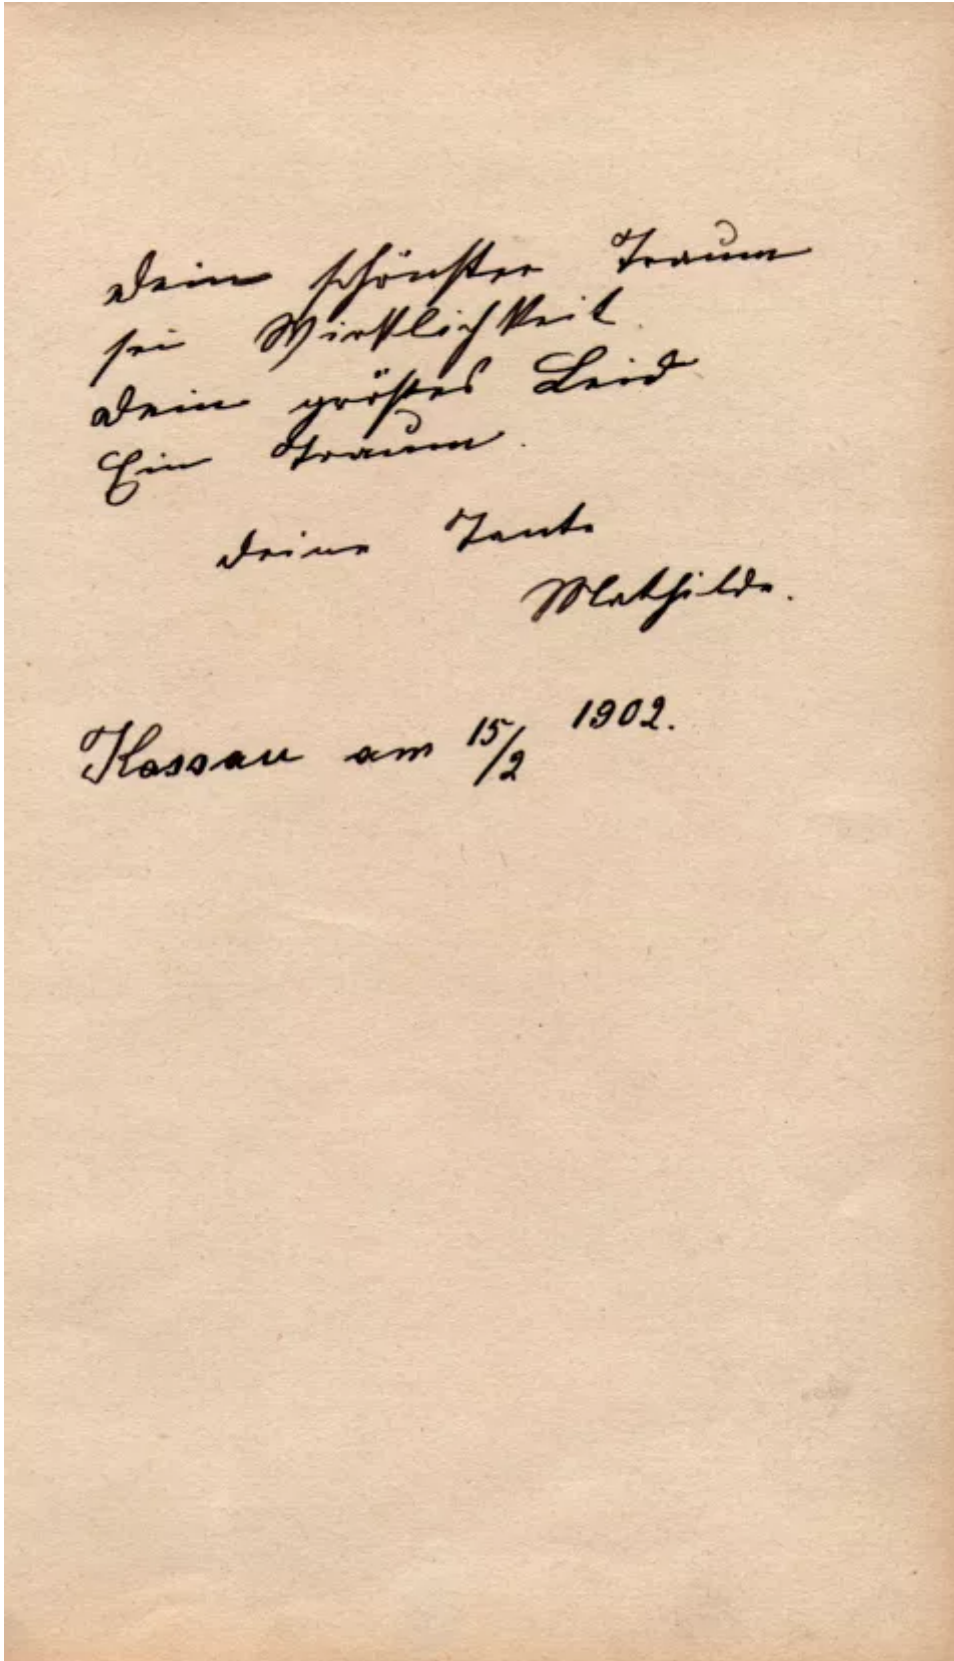 Dein schönster Traum
sei Wirklichkeit.
Dein größtes Leid
Ein Traum.
Deine Tante
Mathilde.
Kossau am 15/2 1902.